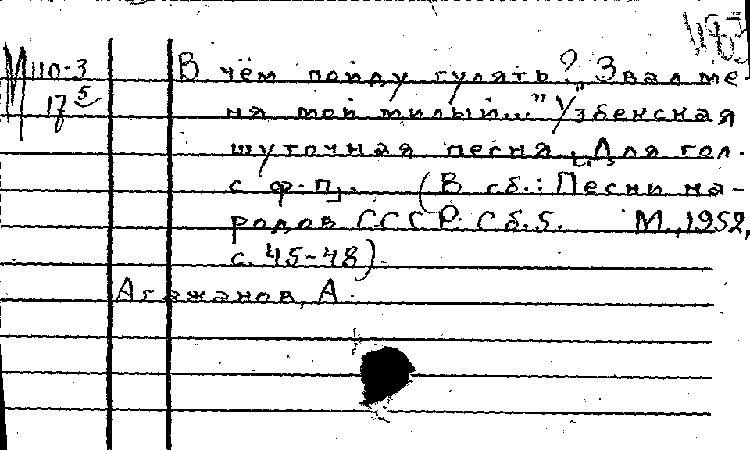 М110-3
17 5
В чём пойду гулять? „Звал ме-
ня мой милый..." Узбекская
шуточная песня. [Для гол.
с ф.-п.]. (В сб.: Песни на-
родов СССР. Сб. 5. М., 1952,
с. 45-48).
Агажанов, А.